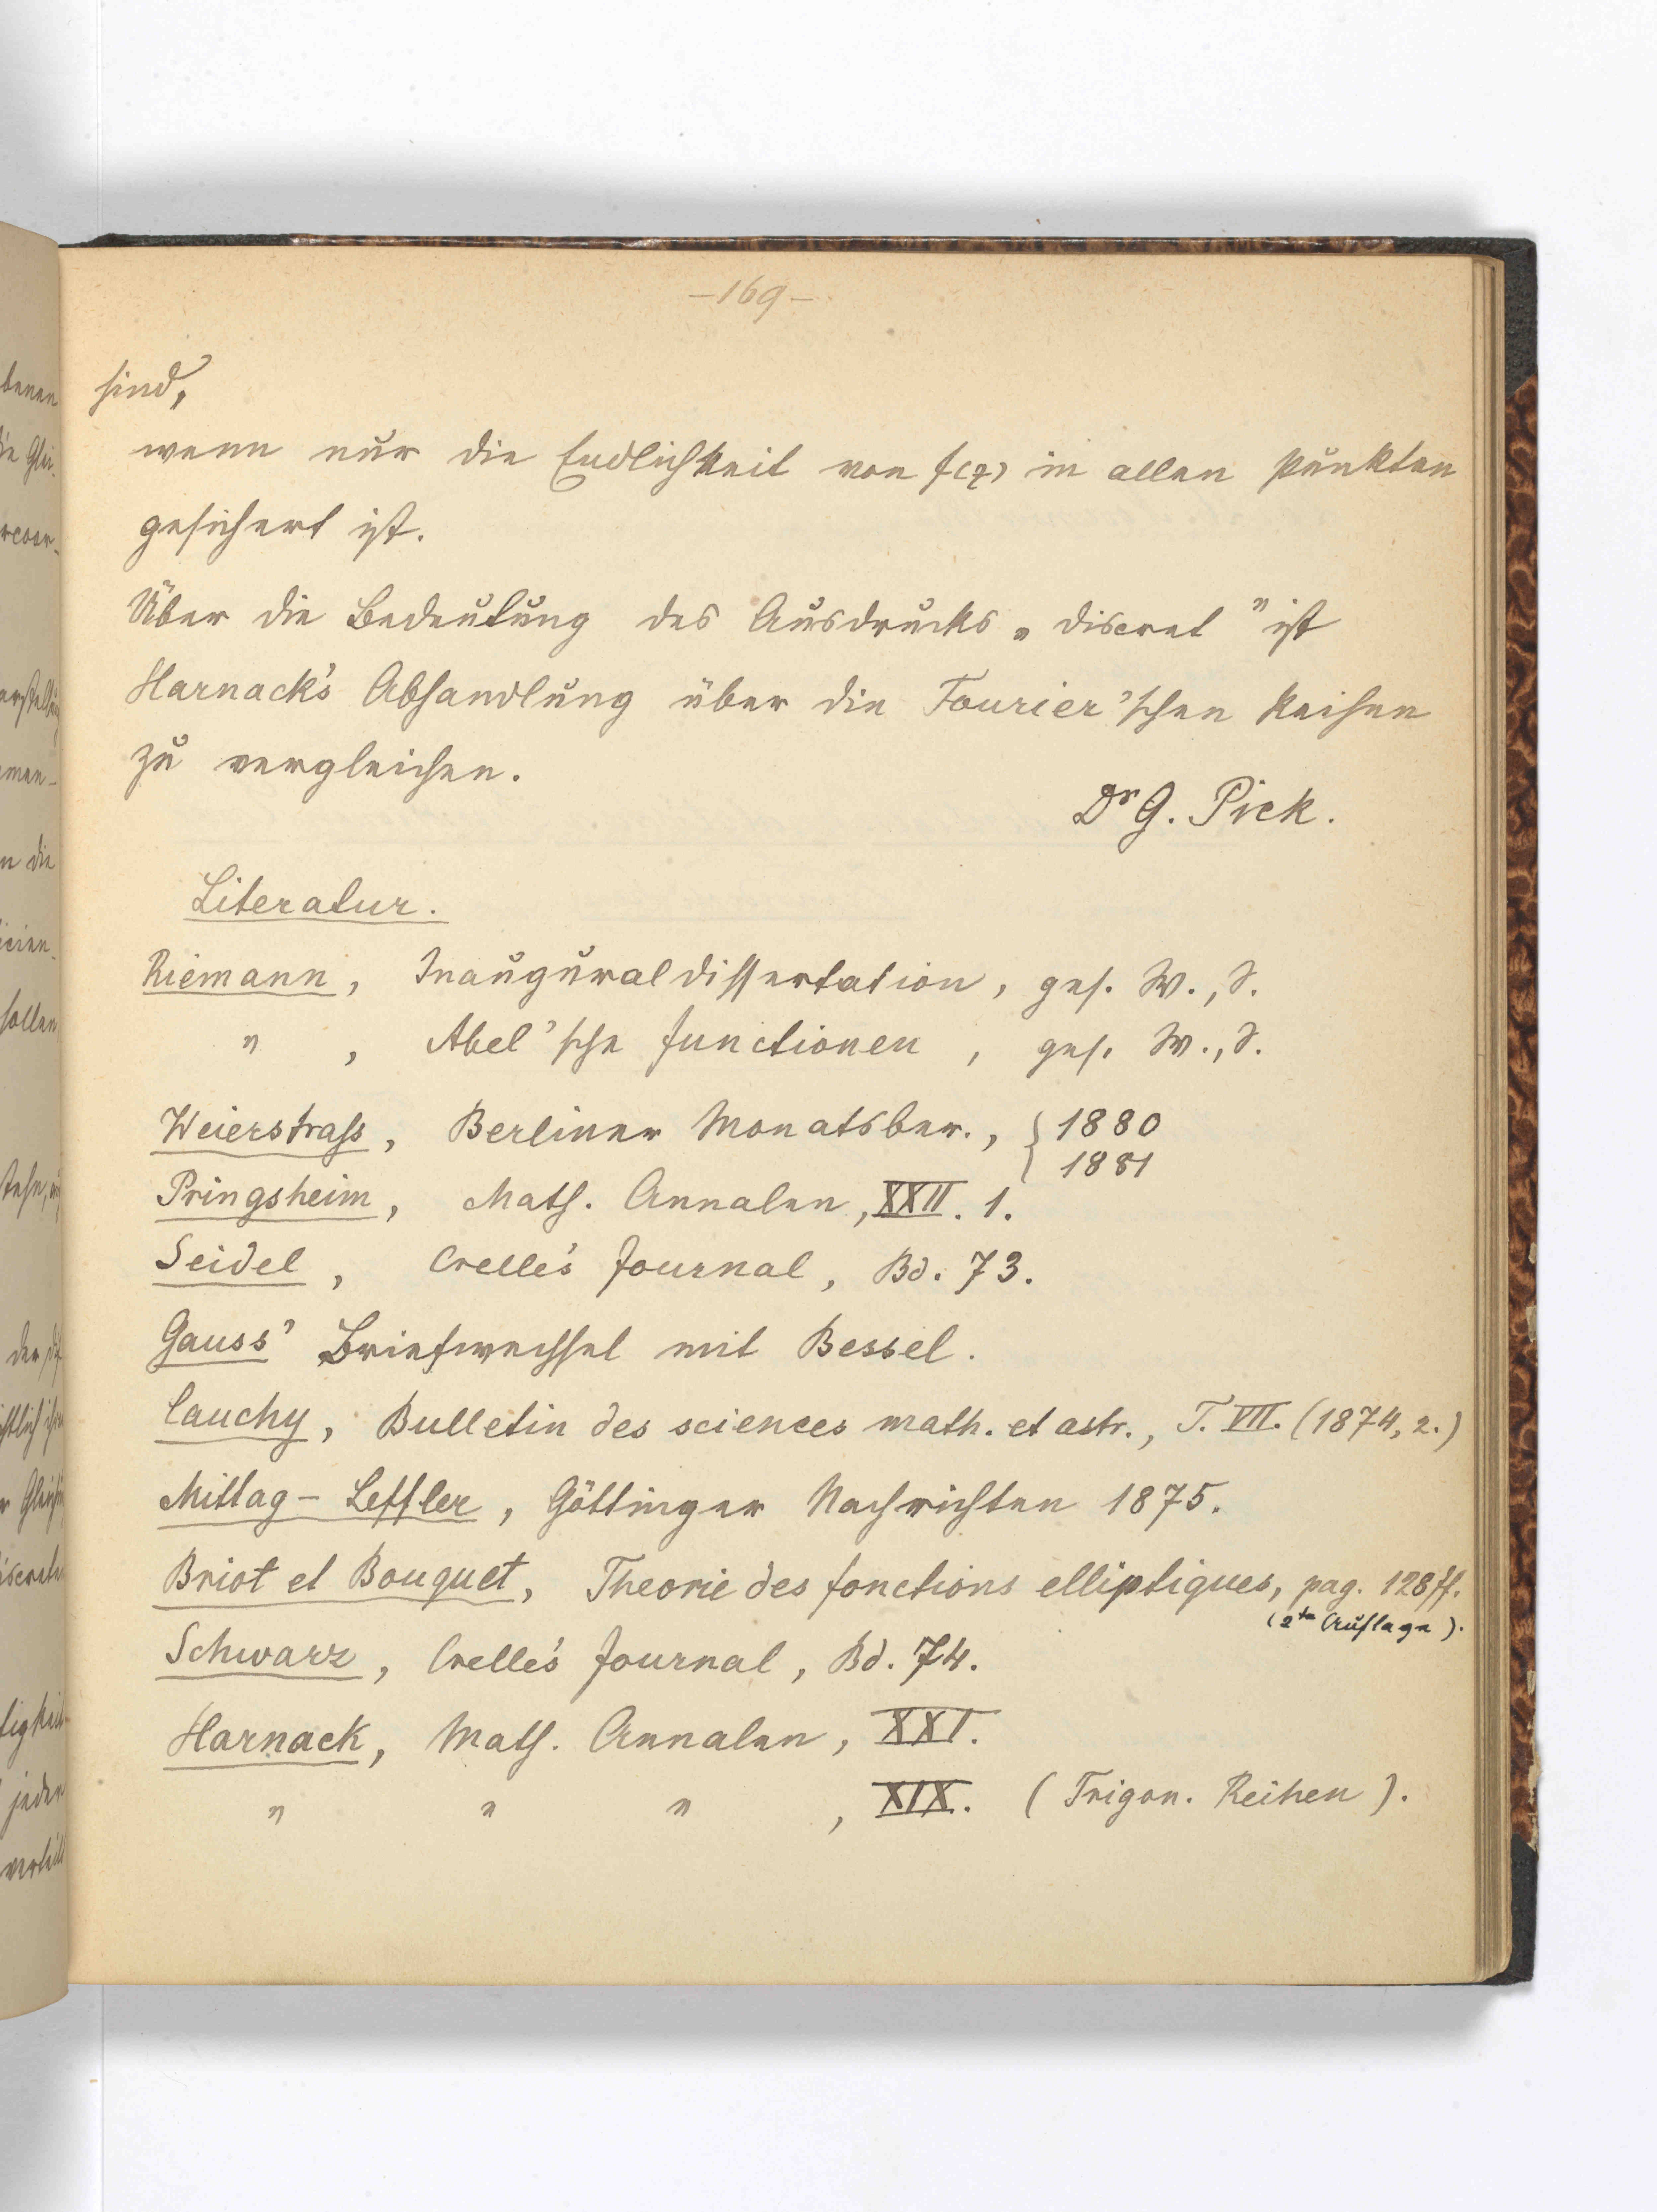 –169–
sind,
wenn nur die Endlichkeit von f(z) in allen Punkten
gesichert ist.
Über die Bedeutung des Ausdrucks „discret” ist
Harnack's Abhandlung über die Fourier'schen Reihen
zu vergleichen.
Dr G. Pick.
Literatur.
Riemann, Inauguraldissertation, ges. W., S.
" , Abel'sche Functionen, ges. W., S.
Weierstrass, Berliner Monatsber., { 1880
1881
Pringsheim, Math. Annalen, XXII. 1.
Seidel, Crelle's Journal, Bd. 73.
Gauss' Briefwechsel mit Bessel.
Cauchy, Bulletin des sciences math. et astr., T. VII. (1874, 2.)
Mittag-Leffler, Göttinger Nachrichten 1875.
Briot et Bouquet, Theorie des fonctions elliptiques, pag. 128ff.
(2te Auflage).
Schwarz, Crelle's Journal, Bd. 74.
Harnack, Math. Annalen, XXI.
" " " , XIX. (Trigon. Reihen).